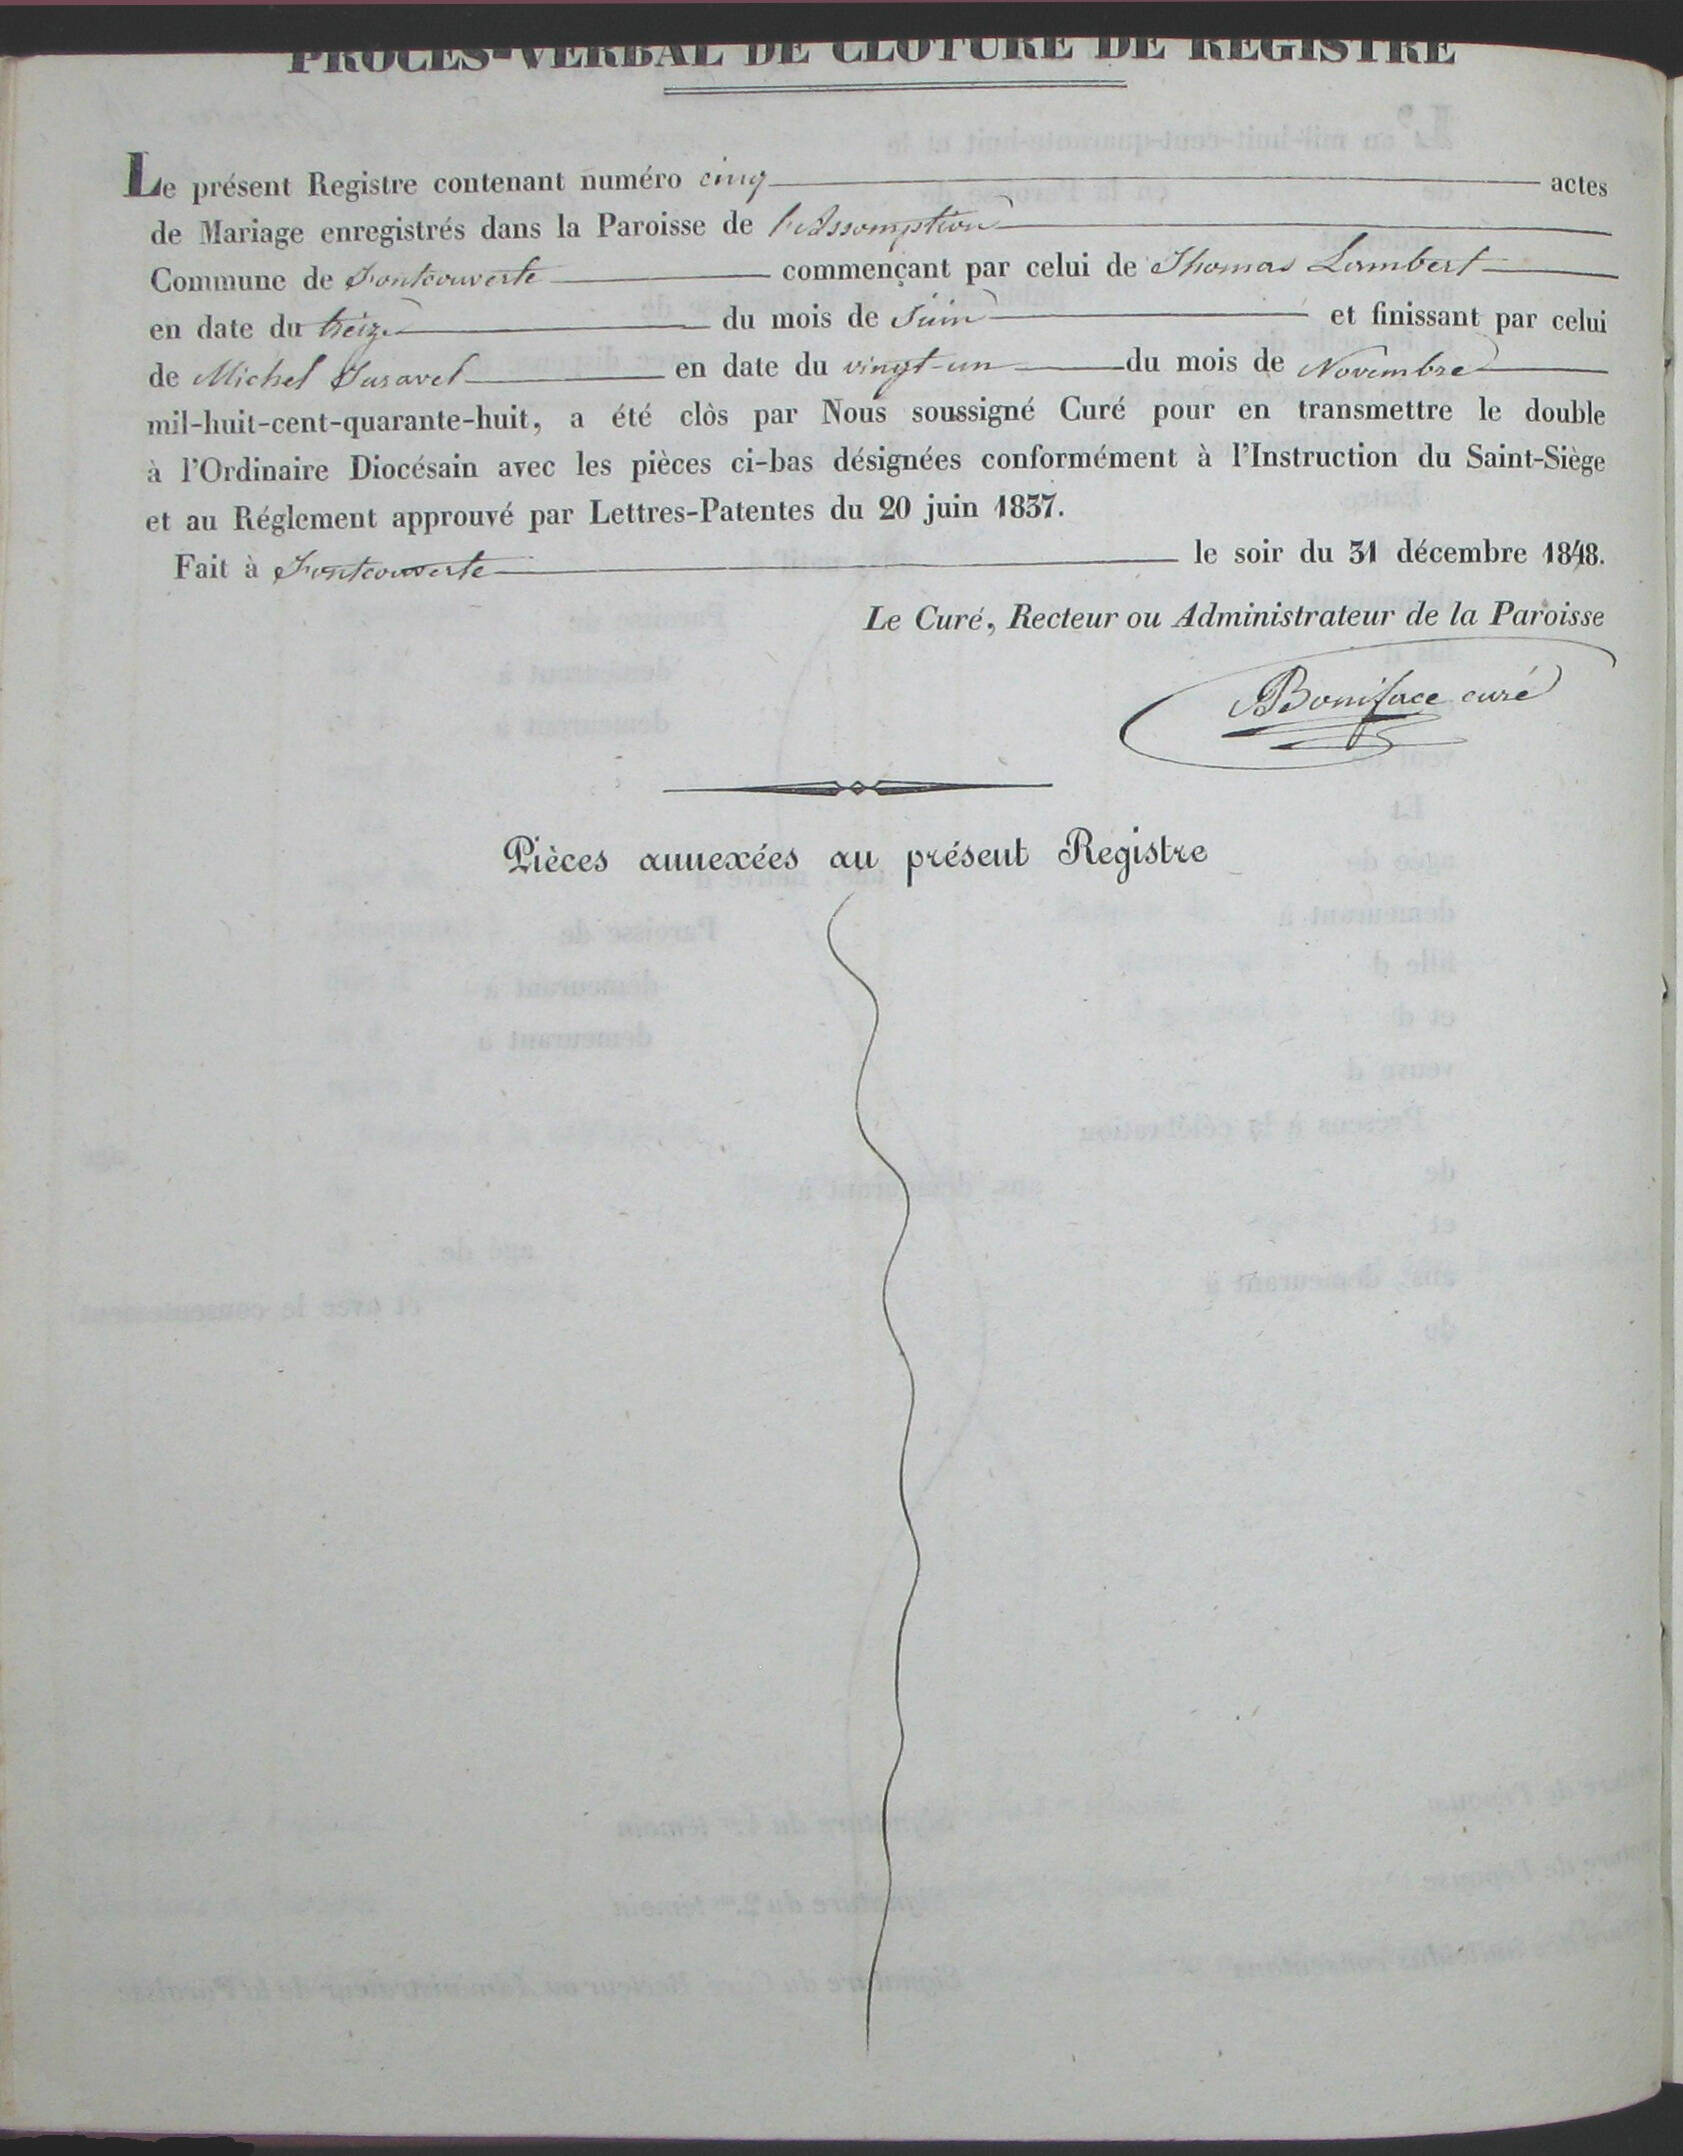 PROCÈS-VERBAL DE CLÔTURE DE REGISTRE
Le présent Registre contenant numéro cinq actes
de Mariage enregistrés dans la Paroisse de l'Assomption
Commune de Fontcouverte commençant par celui de Thomas Lambert
en date du treize du mois de Juin et finissant par celui
de Michel en date du vingt-un du mois de Novembre
mil-huit-cent-quarante-huit, a été clòs par Nous soussigné Curé pour en transmettre le double
à l'Ordinaire Diocésain avec les pièces ci-bas désignées conformément à l'Instruction du Saint-Siège
et au Réglement approuvé par Lettres-Patentes du 20 juin 1837.
Fait à Fontcouverte le soir du 31 décembre 1848.
Le Curé, Recteur ou Administrateur de la Paroisse
Boniface curé
Pièces annexées au présent Registre